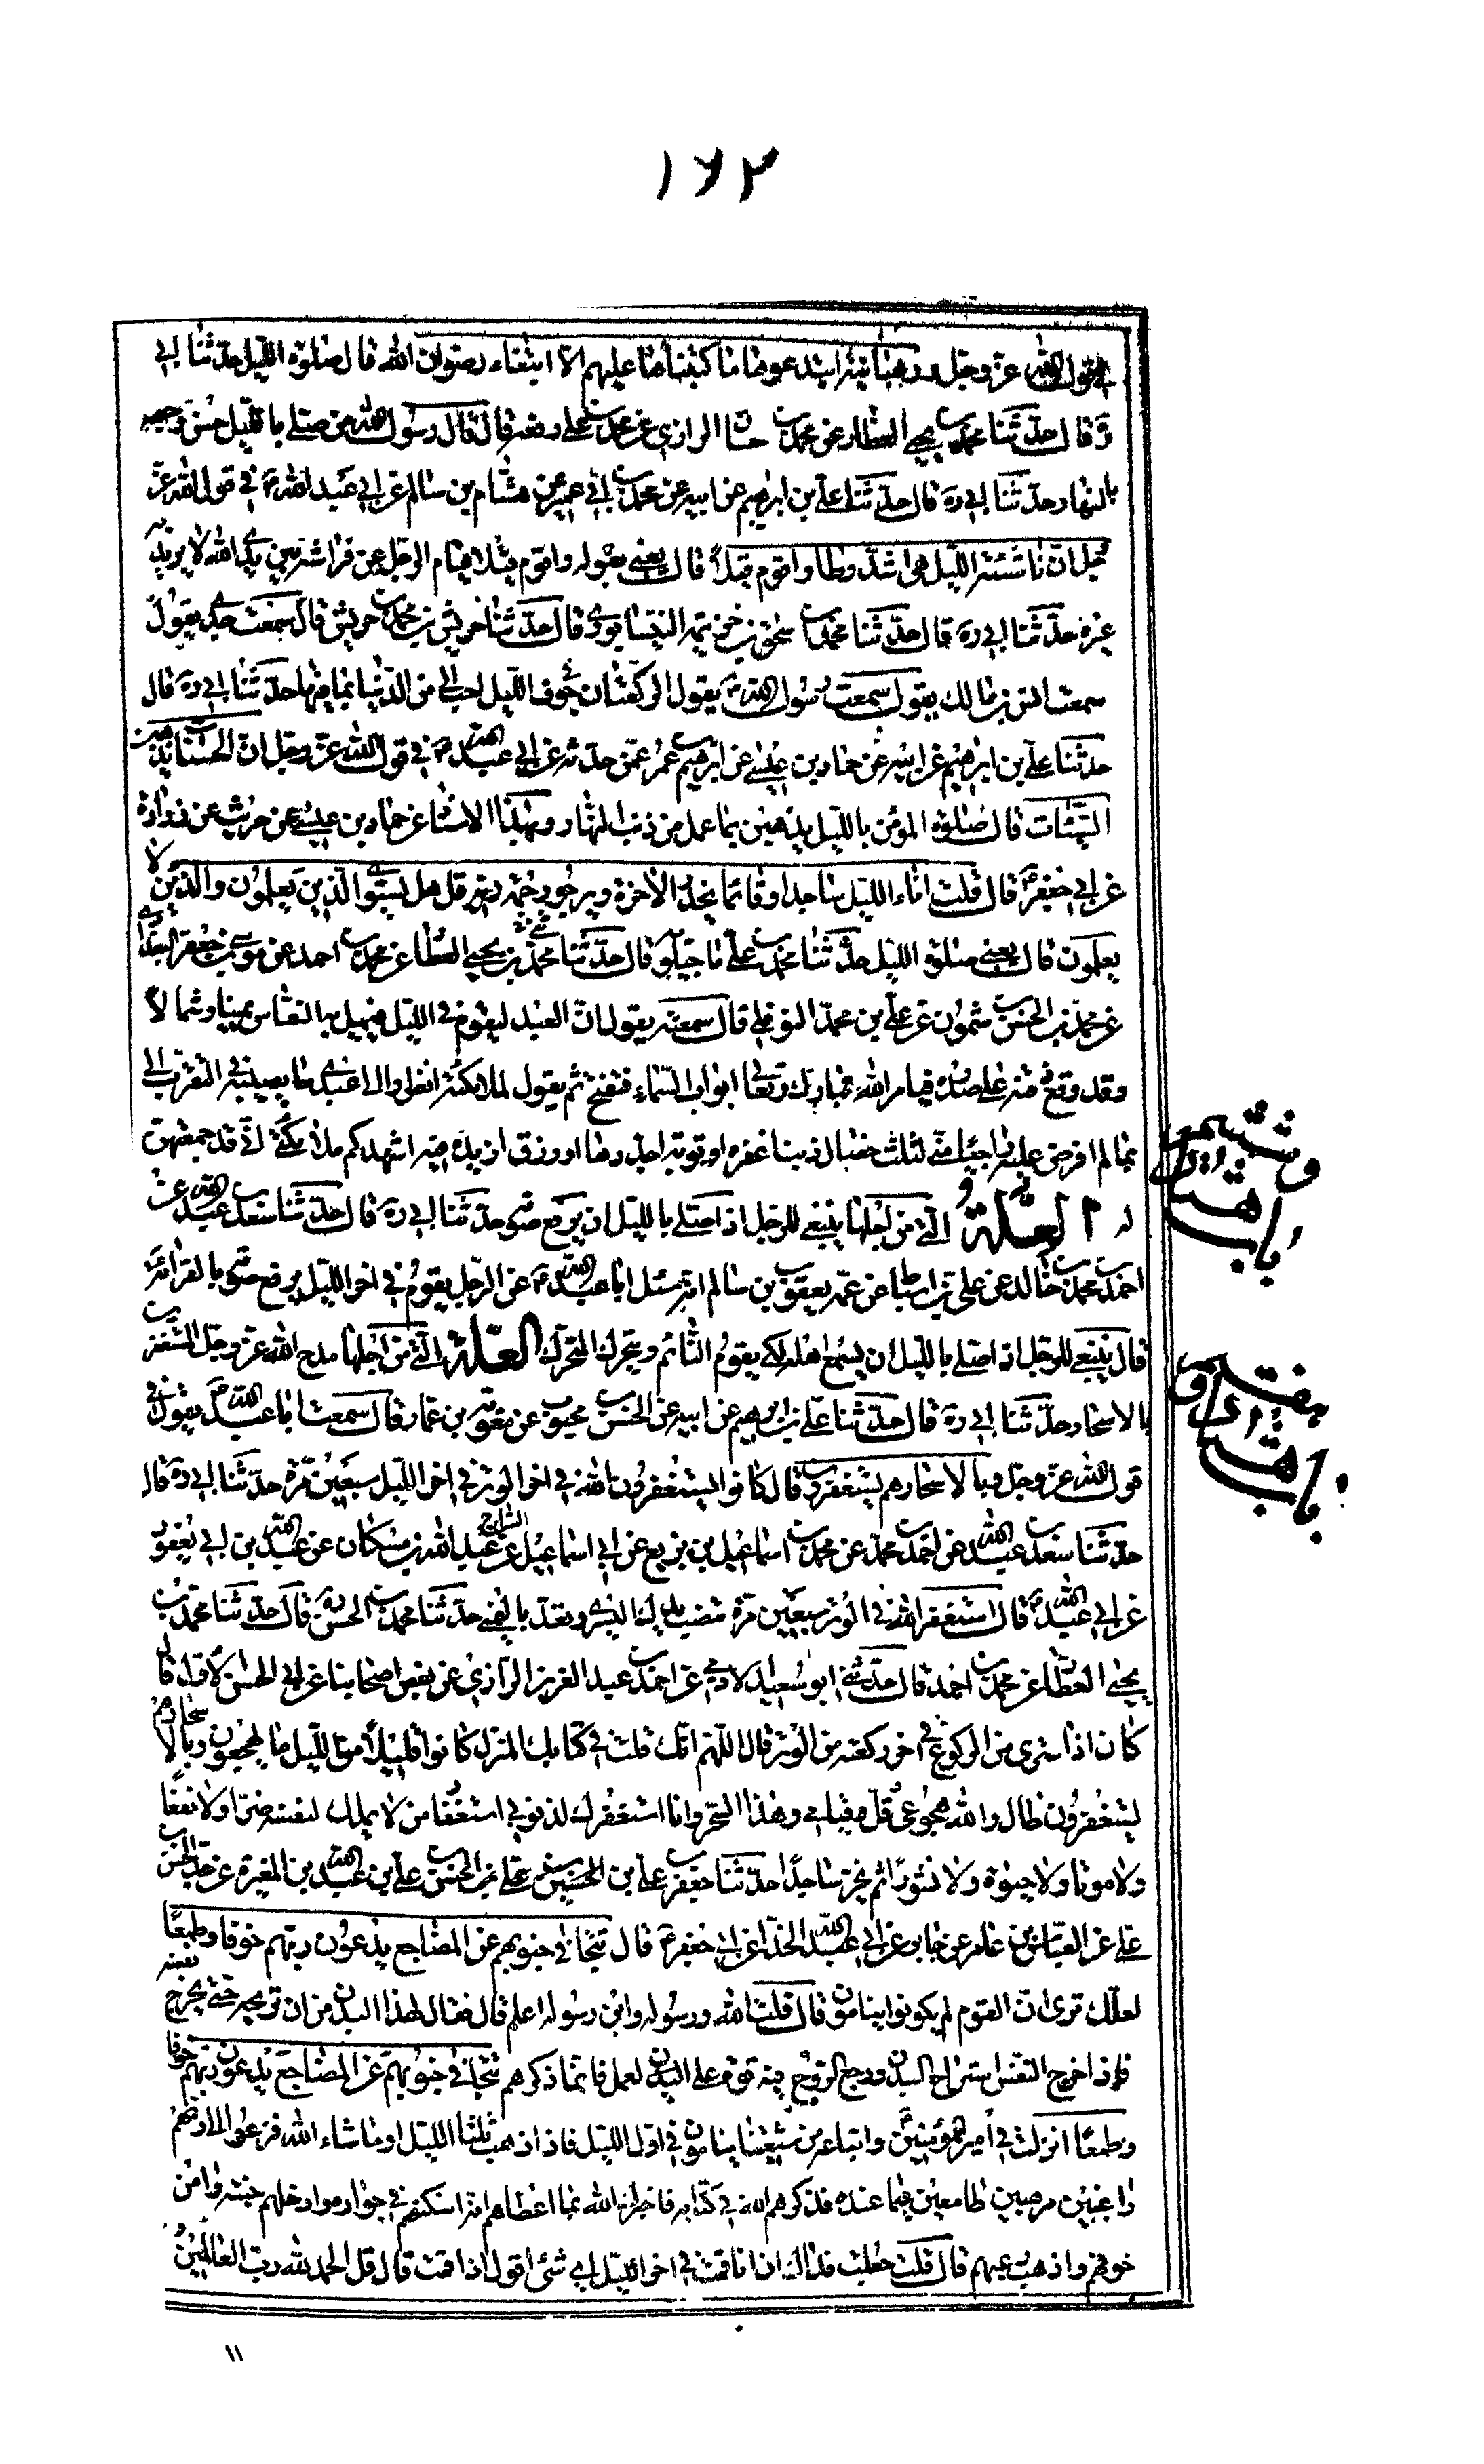 ١٦٢
في قول الله عز وجل ورهبانية ابتدعوها ما كتبناها عليهم الا ابتغاء رضوان الله قال صلوة الليل حدثنا ابي
ره قال حدثنا محمد بن يحيى العطار عن محمد بن حسان الرازي عن محمد بن علي رفعه قال قال رسول الله من صلى بالليل حسن وجهه
بالنهار حدثنا ابي ره قال حدثنا علي بن ابراهيم عن ابيه عن محمد بن ابي عمير عن هشام بن سالم عن ابي عبد الله ع في قول الله عز
وجل ان ناشئة الليل هي اشد وطا واقوم قيلا قال يعني بقوله واقوم قيلا قيام الرجل عن فراشه بين يدي الله لا يريد به
غيره حدثنا ابي ره قال حدثنا محمد بن اسحق بن خزيمة النيسابوري قال حدثنا حريش بن محمد بن حريش قال سمعت جدي يقول
سمعت انس بن مالك يقول سمعت رسول الله ص يقول الركعتان في جوف الليل احب الي من الدنيا بما فيها حدثنا ابي ره قال
حدثنا علي بن ابراهيم عن ابيه عن حماد بن عيسى عن ابراهيم بن عمر عمن حدثه عن ابي عبد الله ع في قول الله عز وجل ان الحسنات يذهبن
السيئات قال صلوة المؤمن بالليل يذهبن بما عمل من ذنب النهار وبهذا الاسناد عن حماد بن عيسى عن حريث عن زرارة
عن ابي جعفر ع قال قلت اناء الليل ساجدا وقائما يحذر الاخرة ويرجو رحمة ربه قل هل يستوي الذين يعلمون والذين لا
يعلمون قال يعني صلوة الليل حدثنا محمد بن علي ماجيلويه قال حدثنا محمد بن يحيى العطار عن محمد بن احمد عن موسى بن جعفر البغدادي
عن محمد بن الحسن بن شمون عن علي بن محمد النوفلي قال سمعته يقول ان العبد ليقوم في الليل فيميل به النعاس يمينا وشمالا
وقد وقع ذقنه على صدره فيامر الله تبارك وتعالى ابواب السماء فتفتح ثم يقول لملائكته انظروا الى عبدي ما يصيبه في التقرب الي
بما لم افرض عليه راجيا مني لثلث خصال ذنبا اغفره او توبة اجددها او رزق ازيده فيه اشهدكم ملائكتي اني قد جمعتهن
له العلة التي من اجلها ينبغي للرجل اذا صلى بالليل ان يرفع صوته حدثنا ابي ره قال حدثنا سعد بن عبد الله عن
احمد بن محمد بن خالد عن علي بن اسباط عن عمه يعقوب بن سالم انه سئل ابا عبد الله ع عن الرجل يقوم في اخر الليل يرفع صوته بالقرائة
قال ينبغي للرجل اذا صلى بالليل ان يسمع اهله لكي يقوم النائم ويتحرك المتحرك العلة التي من اجلها مدح الله عز وجل المستغفرين
بالاسحار حدثنا ابي ره قال حدثنا علي بن ابراهيم عن ابيه عن الحسن بن محبوب عن معوية بن عمار قال سمعت ابا عبد الله ع يقول في
قول الله عز وجل وبالاسحار هم يستغفرون قال كانوا يستغفرون الله في اخر الوتر في اخر الليل سبعين مرة حدثنا ابي ره قال
حدثنا سعد بن عبد الله عن احمد بن محمد عن محمد بن اسماعيل بن بزيع عن ابي اسماعيل السراج عن عبد الله بن مسكان عن عبد الله بن ابي يعفور
عن ابي عبد الله ع قال استغفر الله في الوتر سبعين مرة تنصب يدك اليسرى وتعد باليمنى حدثنا محمد بن الحسن ره قال حدثنا محمد بن
يحيى العطار عن محمد بن احمد قال حدثني ابو سعيد الادمي عن احمد بن عبد العزيز الرازي عن بعض اصحابنا عن ابي الحسن الاول قال
كان اذا استوى من الركوع في اخر ركعته من الوتر قال اللهم انك قلت في كتابك المنزل كانوا قليلا من الليل ما يهجعون وبالاسحار هم
يستغفرون طال والله هجوعي وقل قيامي وهذا السحر وانا استغفرك لذنوبي استغفار من لا يملك لنفسه ضرا ولا نفعا
ولا موتا ولا حيوة ولا نشورا ثم يخر ساجدا حدثنا جعفر بن علي بن الحسن بن علي بن عبد الله بن المغيرة عن جده الحسن بن
علي عن العباس بن عامر عن جابر عن ابي عبيد الله الحذا عن ابي جعفر ع قال تتجافى جنوبهم عن المضاجع يدعون ربهم خوفا وطمعا
لعلك ترى ان القوم لم يكونوا ينامون قال قلت الله ورسوله وابن رسوله اعلم قال فقال لهذا البدن من ان تريحه حتى يخرج نفسه
فاذا خرج النفس استراح البدن ورجع الروح فيه قوة على العمل فانما ذكرهم تتجافى جنوبهم عن المضاجع يدعون ربهم خوفا
وطمعا انزلت في امير المؤمنين ع واتباعه من شيعتنا ينامون في اول الليل فاذا ذهب ثلثا الليل او ما شاء الله فزعوا الى ربهم
راغبين مرهبين طامعين فيما عنده فذكرهم الله في كتابه فاخبرك الله بما اعطاهم انه اسكنهم في جواره وادخلهم جنته وامن
خوفهم واذهب رعبهم قال قلت جعلت فداك ان انا قمت في اخر الليل اي شئ اقول اذا قمت قال قل الحمد لله رب العالمين
باب هشتاد وششم
باب هشتاد وهفتم
١١